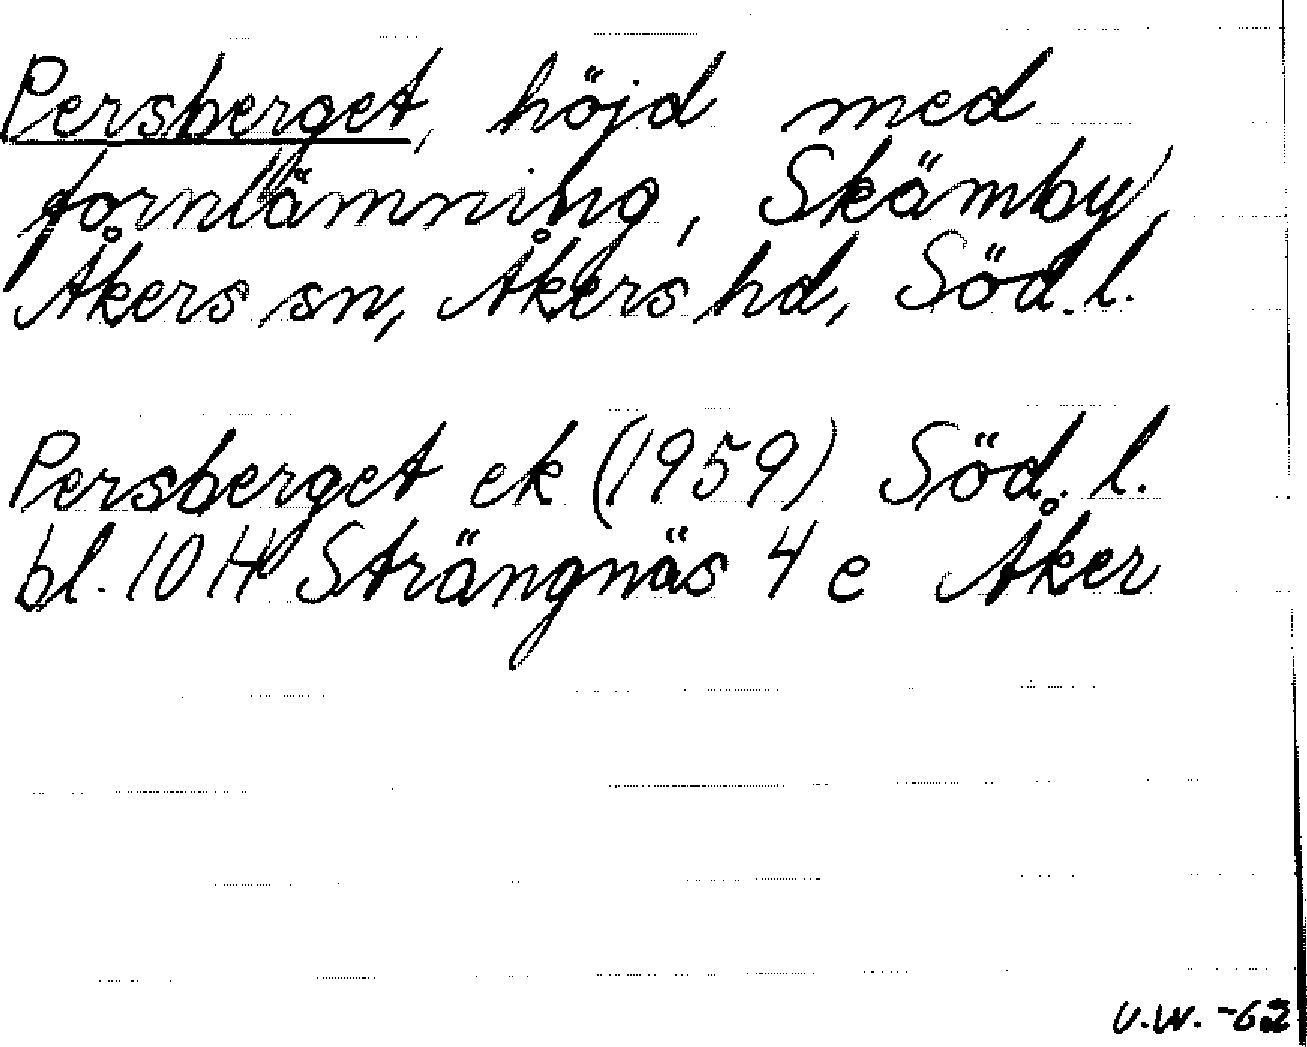 Persberget, höjd med
fornlämning, Skämby,
Åkers sn, Åkers hd, Söd. l.
Persberget ek (1959) Söd. l.
bl. 10 H Strängnäs 4 e Åker
U.W. -62